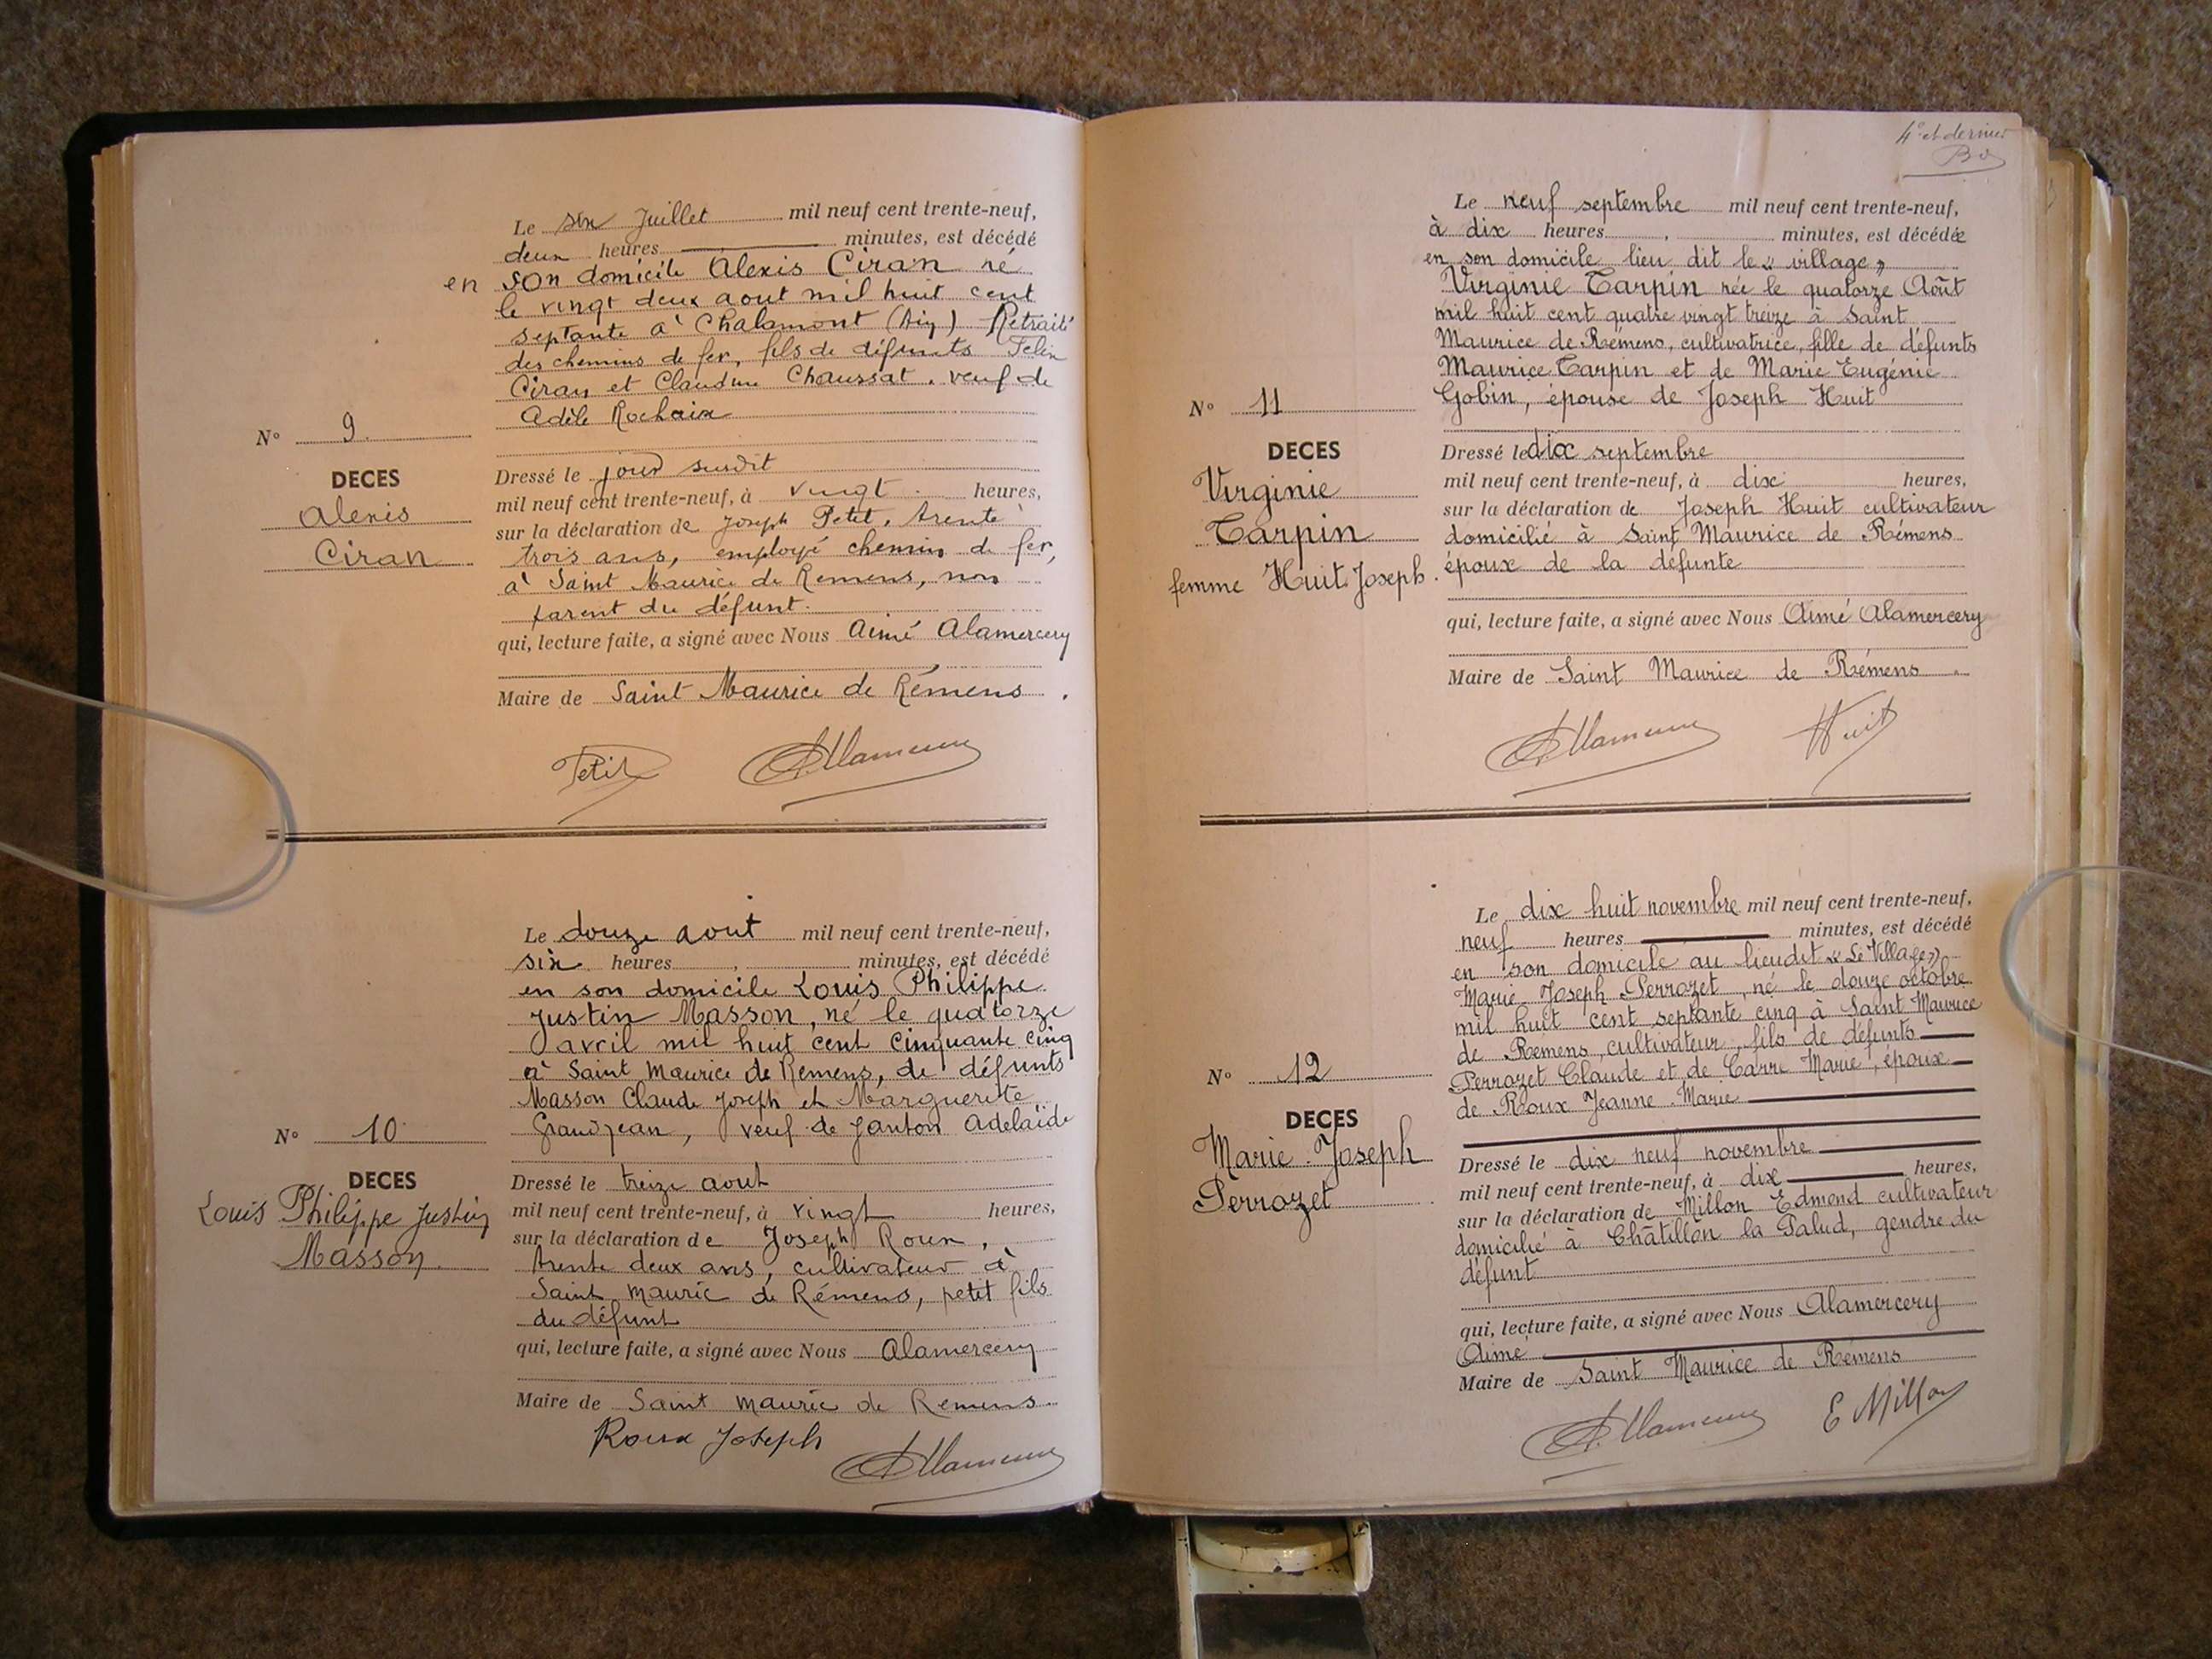 Le six Juillet mil neuf cent trente-neuf,
deux heures minutes, est décédé
en son domicile Alexis Ciran né
le vingt deux aout mil huit cent
septante à Chalamont (Ain) Retraité
des chemins de fer, fils de défunts Felix
Ciran et Claudine Chaussat. veuf de
Adèle Rochaix
N° 9.
DECES
Alexis
Ciran
Dressé le jour susdit
mil neuf cent trente-neuf, à vingt heures,
sur la déclaration de Joseph Petit, trente
trois ans, employé chemin de fer,
à Saint Maurice de Remens, non
parent du défunt.
qui, lecture faite, a signé avec Nous Aimé Alamercery
Maire de Saint Maurice de Rémens.
Petit
Le douze aout mil neuf cent trente-neuf,
six heures, minutes, est décédé
en son domicile Louis Philippe
Justin Masson, né le quatorze
avril mil huit cent cinquante cinq
à Saint Maurice de Remens, de défunts
Masson Claude Joseph et Marguerite
Grandjean, veuf de Janton Adelaïde
N° 10
DECES
Louis Philippe Justin
Masson
Dressé le treize aout
mil neuf cent trente-neuf, à vingt heures,
sur la déclaration de Joseph Roux,
trente deux ans, cultivateur à
Saint Maurice de Rémens, petit fils
du défunt
qui, lecture faite, a signé avec Nous Alamercery
Maire de Saint Maurice de Remens
Roux Joseph
4e et dernier
Le neuf septembre mil neuf cent trente-neuf,
à dix heures, minutes, est décédée
en son domicile lieu dit le « village »
Virginie Tarpin née le quatorze Août
mil huit cent quatre vingt treize à Saint
Maurice de Rémens, cultivatrice, fille de défunts
Maurice Tarpin et de Marie Eugénie
Gobin, épouse de Joseph Huit
N° 11
DECES
Virginie
Tarpin
femme Huit Joseph.
Dressé le dix septembre
mil neuf cent trente-neuf, à dix heures,
sur la déclaration de Joseph Huit cultivateur
domicilié à Saint Maurice de Rémens
époux de la défunte
qui, lecture faite, a signé avec Nous Aimé Alamercery
Maire de Saint Maurice de Rémens.
Huit
Le dix huit novembre mil neuf cent trente-neuf,
neuf heures minutes, est décédé
en son domicile au lieudit « Le Village »
Marie Joseph Perrozet, né le douze octobre
mil huit cent septante cinq à Saint Maurice
de Remens, cultivateur, fils de défunts
Perrozet Claude et de Carre Marie, époux
de Roux Jeanne Marie
N° 12
DECES
Marie-Joseph
Perrozet
Dressé le dix neuf novembre
mil neuf cent trente-neuf, à dix heures,
sur la déclaration de Millon Edmond cultivateur
domicilié à Châtillon la Palud, gendre du
défunt
qui, lecture faite, a signé avec Nous Alamercery
Aimé
Maire de Saint Maurice de Rémens
E Millon